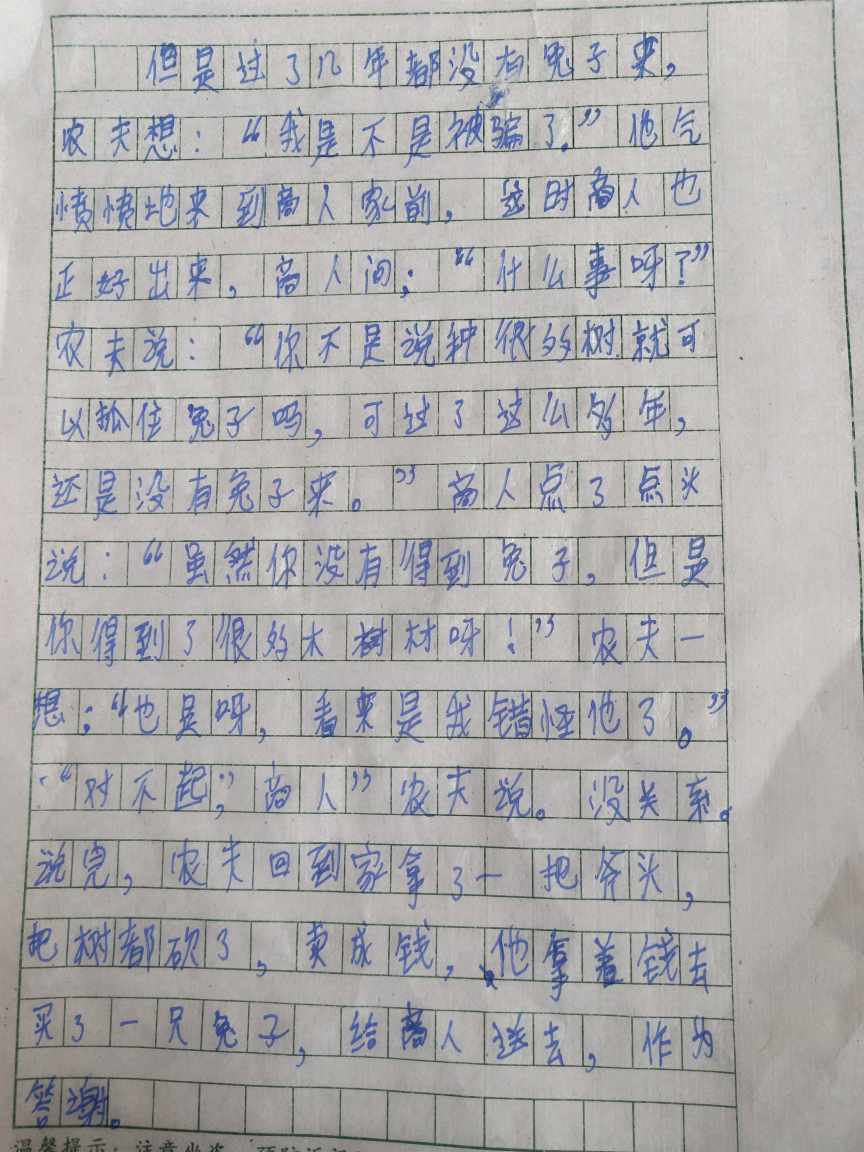 但是过了几年都没有兔子来,
农夫想:“我是不是被骗了。”他气
愤愤地来到商人家前,这时商人也
正好出来,商人问:“什么事呀?”
农夫说:“你不是说种很多树就可
以抓住兔子吗,可过了这么多年,
还是没有兔子来。”商人点了点头
说:“虽然你没有得到兔子,但是
你得到了很多木树材呀!”农夫一
想:“也是呀,看来是我错怪他了。”
“对不起,”商人”农夫说。没关系。
说完,农夫回到家拿了一把斧头,
把树都砍了,卖成钱,他拿着钱去
买了一只兔子,给商人送去,作为
答谢。
温馨提示:注意坐姿,预防近视